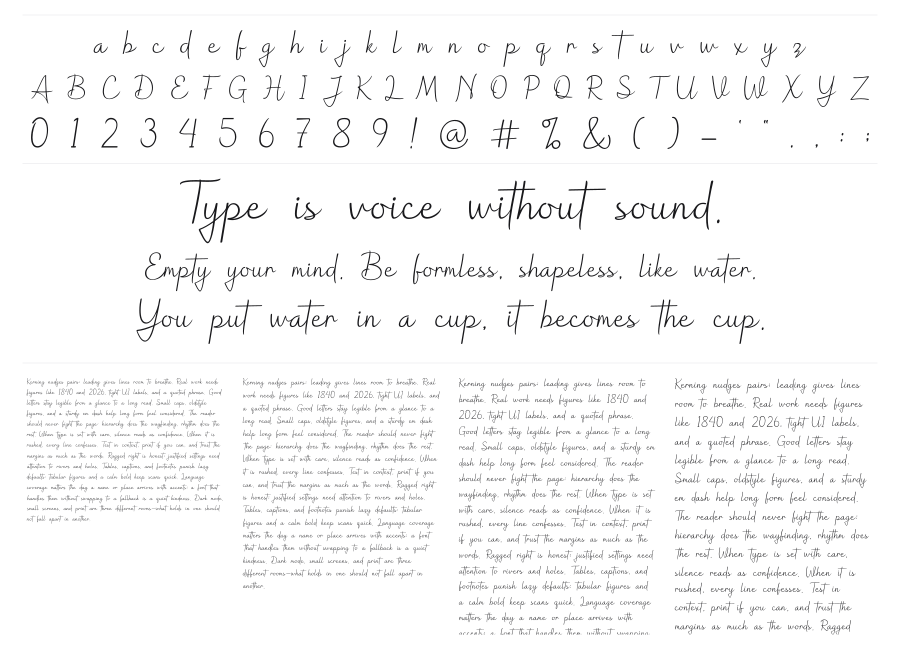 a b c d e f g h i j k l m n o p q r s T u v w x y z
A B C D E F G H I J K L M N O P Q R S T U V W X Y Z
0 1 2 3 4 5 6 7 8 9 ! @ # % & ( ) – ' " . , : ;
Type is voice without sound.
Empty your mind. Be formless, shapeless, like water.
You put water in a cup, it becomes the cup.
Kerning nudges pairs; leading gives lines room to breathe. Real work needs
figures like 1840 and 2026, tight UI labels, and a quoted phrase. Good
letters stay legible from a glance to a long read. Small caps, oldstyle
figures, and a sturdy en dash help long form feel considered. The reader
should never fight the page: hierarchy does the wayfinding, rhythm does the
rest. When type is set with care, silence reads as confidence. When it is
rushed, every line confesses. Test in context, print if you can, and trust the
margins as much as the words. Ragged right is honest; justified settings need
attention to rivers and holes. Tables, captions, and footnotes punish lazy
defaults: tabular figures and a calm bold keep scans quick. Language
coverage matters the day a name or place arrives with accents: a font that
handles them without swapping to a fallback is a quiet kindness. Dark mode,
small screens, and print are three different rooms—what holds in one should
not fall apart in another.
Kerning nudges pairs; leading gives lines room to breathe. Real
work needs figures like 1840 and 2026, tight UI labels, and
a quoted phrase. Good letters stay legible from a glance to a
long read. Small caps, oldstyle figures, and a sturdy en dash
help long form feel considered. The reader should never fight
the page: hierarchy does the wayfinding, rhythm does the rest.
When type is set with care, silence reads as confidence. When
it is rushed, every line confesses. Test in context, print if you
can, and trust the margins as much as the words. Ragged right
is honest; justified settings need attention to rivers and holes.
Tables, captions, and footnotes punish lazy defaults: tabular
figures and a calm bold keep scans quick. Language coverage
matters the day a name or place arrives with accents: a font
that handles them without swapping to a fallback is a quiet
kindness. Dark mode, small screens, and print are three
different rooms—what holds in one should not fall apart in
another.
Kerning nudges pairs; leading gives lines room to
breathe. Real work needs figures like 1840 and
2026, tight UI labels, and a quoted phrase.
Good letters stay legible from a glance to a long
read. Small caps, oldstyle figures, and a sturdy en
dash help long form feel considered. The reader
should never fight the page: hierarchy does the
wayfinding, rhythm does the rest. When type is set
with care, silence reads as confidence. When it is
rushed, every line confesses. Test in context, print
if you can, and trust the margins as much as the
words. Ragged right is honest; justified settings need
attention to rivers and holes. Tables, captions, and
footnotes punish lazy defaults: tabular figures and
a calm bold keep scans quick. Language coverage
matters the day a name or place arrives with
accents: a font that handles them without swapping
Kerning nudges pairs; leading gives lines
room to breathe. Real work needs figures
like 1840 and 2026, tight UI labels,
and a quoted phrase. Good letters stay
legible from a glance to a long read.
Small caps, oldstyle figures, and a sturdy
en dash help long form feel considered.
The reader should never fight the page:
hierarchy does the wayfinding, rhythm does
the rest. When type is set with care,
silence reads as confidence. When it is
rushed, every line confesses. Test in
context, print if you can, and trust the
margins as much as the words. Ragged